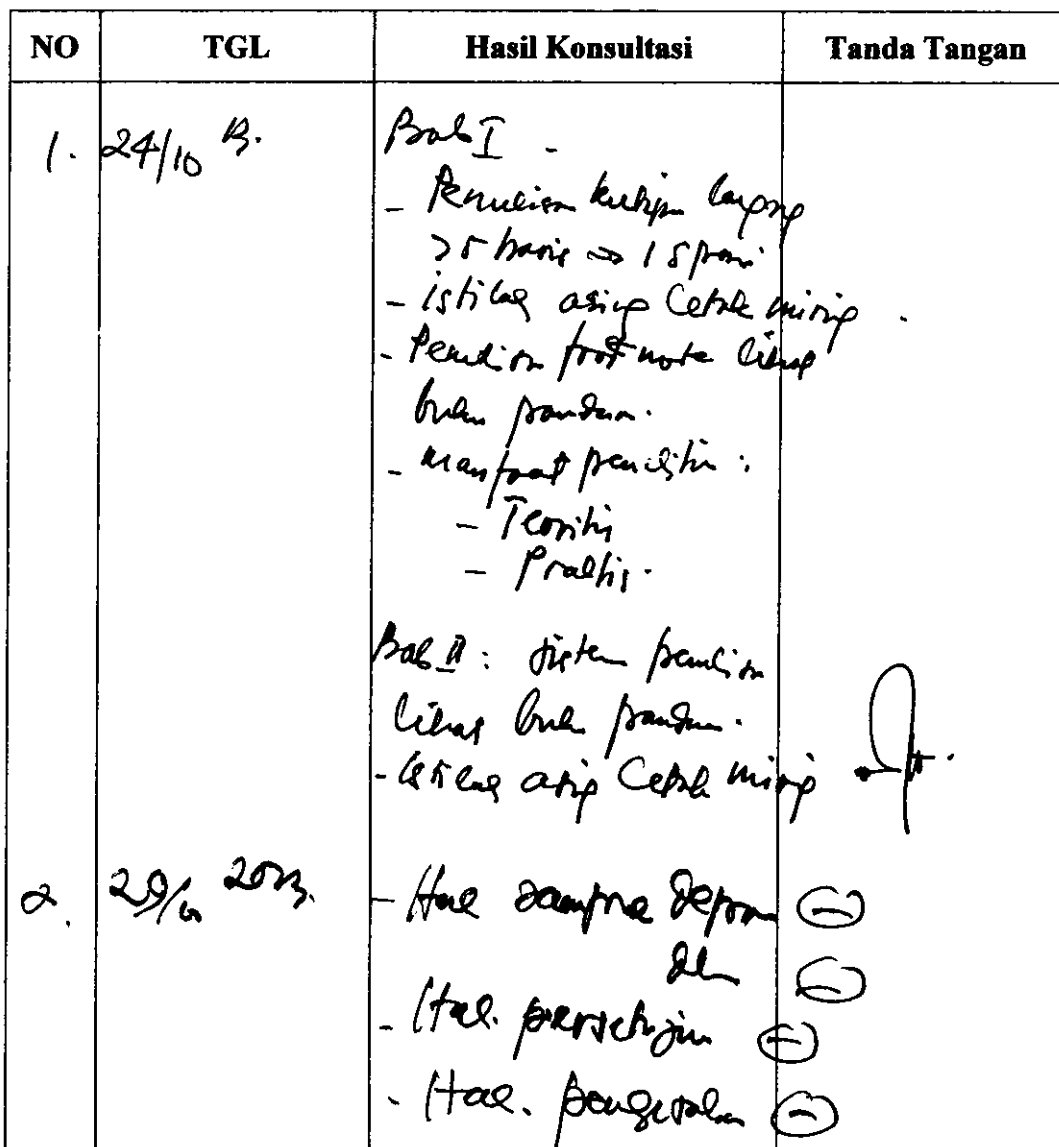 NO TGL Hasil Konsultasi Tanda Tangan
1. 24/10 13. Bab I.
- Penulisan kutipan langsung
>5 baris ⇒ 1 spasi
- istilah asing Cetak miring.
- Penulisan footnote lihat
buku panduan.
- manfaat penelitian:
- Teoritis
- Praktis.
Bab II: sistem penulisan
lihat buku panduan.
- istilah asing Cetak miring
2. 29/10 2013. - Hal sampul depan (-)
dlm (-)
- Hal. persetujuan (-)
- Hal. pengesahan (-)